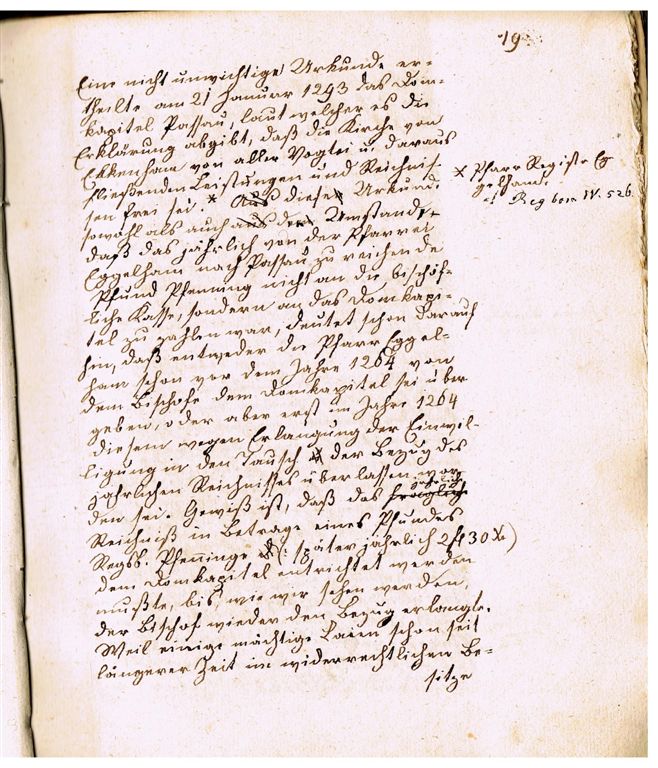 19.
Eine nicht unwichtige Urkunde er-
theilte am 21 Januar 1293 das Dom-
kapitel Passau, laut welcher es die
Erklärung abgibt, daß die Kirche von
Ekkenham von aller Vogtei u. daraus
fließenden Leistungen und Reichnis-
sen frei sei. * Aus dieser Urkunde
sowohl als auch aus dem Umstande,
daß das jährlich von der Pfarrei
Eggelham nach Passau zu reichende
Pfund Pfenning nicht an die bischöf-
liche Kasse, sondern an das Domkapi-
tel zu zahlen war, deutet schon darauf
hin, daß entweder die Pfarr Eggel-
ham schon vor dem Jahre 1264 von
dem Bischofe dem Domkapitel sei über
geben, oder aber erst im Jahre 1264
diesem wegen Erlangung der Einwil-
ligung in den Tausch der Bezug des
jährlichen Reichnisses überlassen wor-
den sei. Gewiß ist, daß das fragliche jährliche
Reichniß im Betrage eines Pfundes
Regsb. Pfenninge (: später jährlich 2 fl 30 x)
dem Domkapitel entrichtet werden
mußte, bis, wie wir sehen werden,
der Bischof wieder den Bezug erlangte.
Weil einige mächtige Laien schon seit
längerer Zeit im widerrechtlichen Be-
sitze
x Pfarr Registr Eg
gelham.
cf. Reg boic IV. 526.